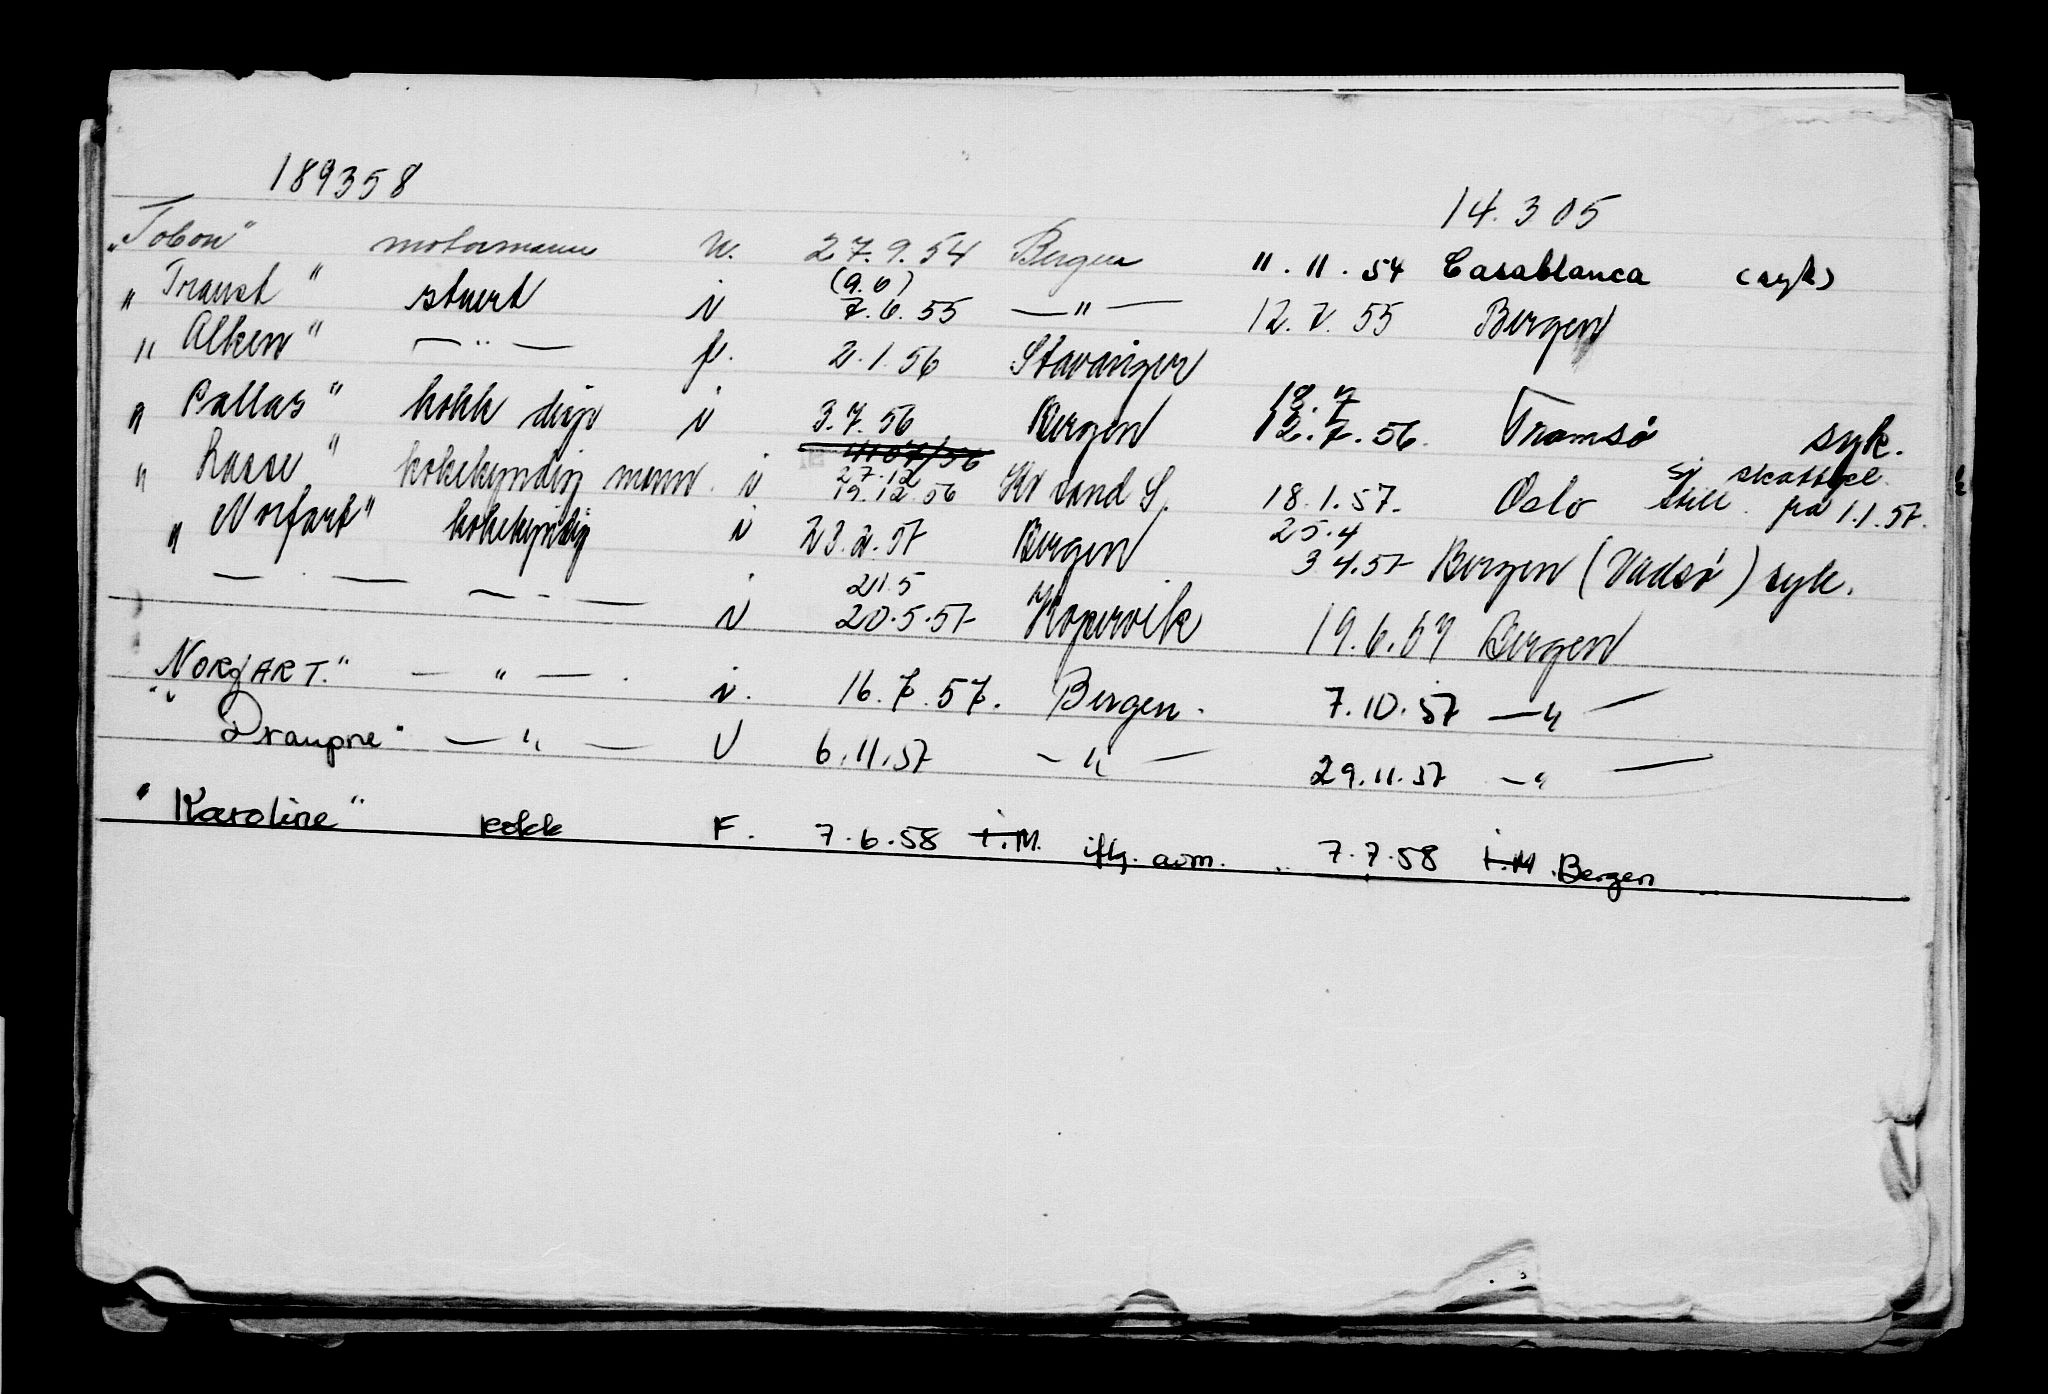 189358
14.305
"Tobon" motormann u. 27.9.54 Bergen 11.11.54 Casablanca (syk)
(9.6)
" Transt " stuert i 7.6.55 — " — 12.7.55 Bergen
" Alken " — " — f. 2.1.56 Stavanger
18.7
" Pallas " kokk disp i 3.7.56 Bergen 12.7.56. Tromsø syk.
27.12
" Lasse " kokekyndig mann. i 19.12.56 Kr sand S. 18.1.57. Oslo si skattepl. still. fra 1.1.57.
25.4
" Norfart" kokekyndig i 23.2.57 Bergen 3 4.57 Bergen (Vadsø) syk.
21.5
— . — — . — i 20.5.57 Kopervik 19.6.57 Bergen
"NORFART." — " — . i. 16.7.57. Bergen. 7.10.57 — " —
" Draupne" — " — U 6.11.57 — " — 29.11.57 — " —
" Karoline " kokk F. 7.6.58 I.M. iflg. avm. 7.7.58 I.M. Bergen